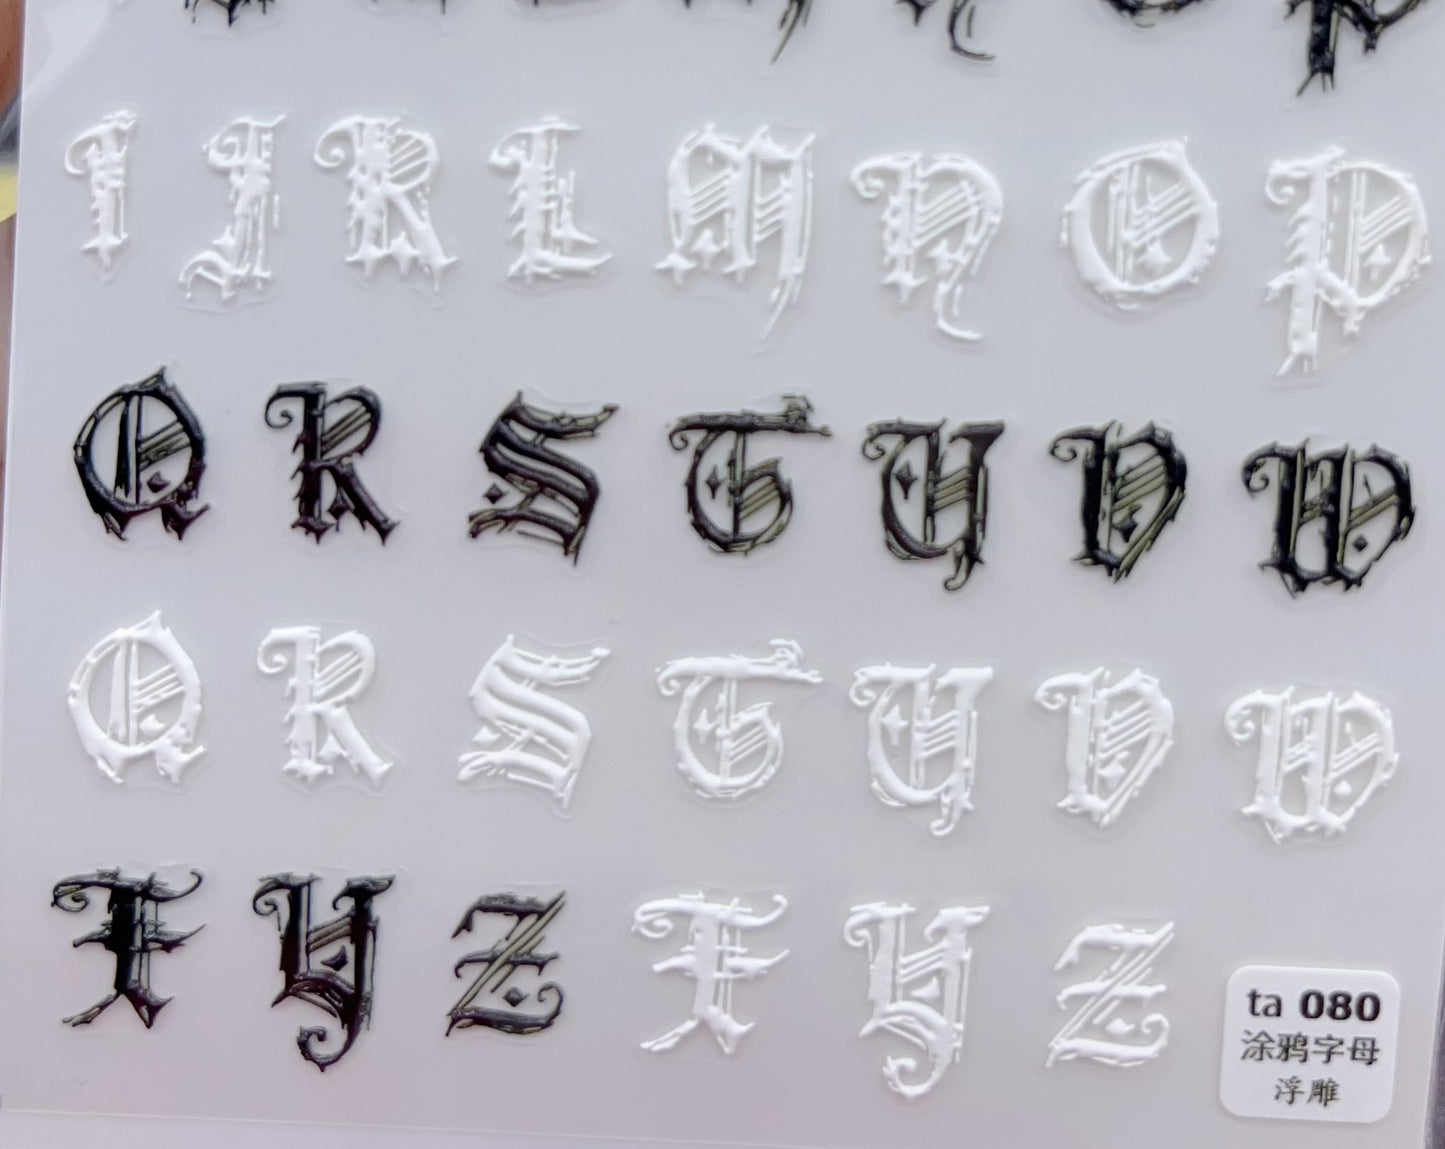 I J K L M N O P
Q R S T U V W
Q R S T U V W
X Y Z X Y Z
ta 080
涂鸦字母
浮雕